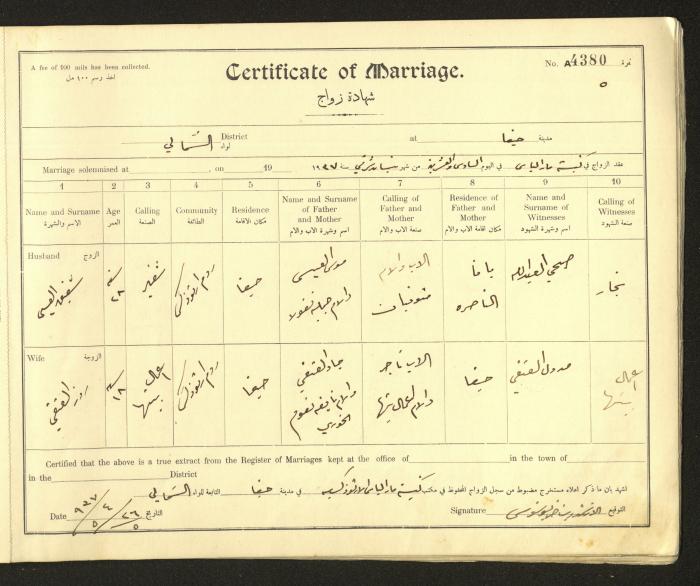 A fee of 100 mils has been collected.
اخذ رسم ١٠٠ مل
No. A4380 نمرة
Certificate of Marriage.
شهادة زواج
الشمالي District لواء at حيفا مدينة
Marriage solemnised at , on 19
عقد الزواج في كنيسة مار الياس في اليوم السادس والعشرين من شهر سنة ١٩٣٧
1 2 3 4 5 6 7 8 9 10
Name and Surname Age Calling Community Residence Name and Surname of Father and Mother Calling of Father and Mother Residence of Father and Mother Name and Surname of Witnesses Calling of Witnesses
الاسم والشهرة العمر الصنعة الطائفة مكان الاقامة اسم وشهرة الاب والام صنعة الاب والام مكان اقامة الاب والام اسم وشهرة الشهود صنعة الشهود
Husband الزوج
شفيق العيسى
٢٨
روم ارثوذكس
حيفا
موسى العيسى
والام
الاب والام
متوفيان
يافا
الناصره
صبحي العبدالله
نجار
Wife الزوجة
روز القنقي
١٨
اعمال بيتها
روم ارثوذكس
حيفا
جاد القنقي
والام نايفه
الخوري
الاب تاجر
والام اعمال بيتها
حيفا
القنقي
اعمال بيتها
Certified that the above is a true extract from the Register of Marriages kept at the office of in the town of
in the District
اشهد بان ما ذكر اعلاه مستخرج مضبوط من سجل الزواج المحفوظ في مكتب كنيسة مار الياس الارثوذكسيه في مدينة حيفا التابعة للواء الشمالي
Date ٩٣٧/٤/٢٦ التاريخ
Signature التوقيع